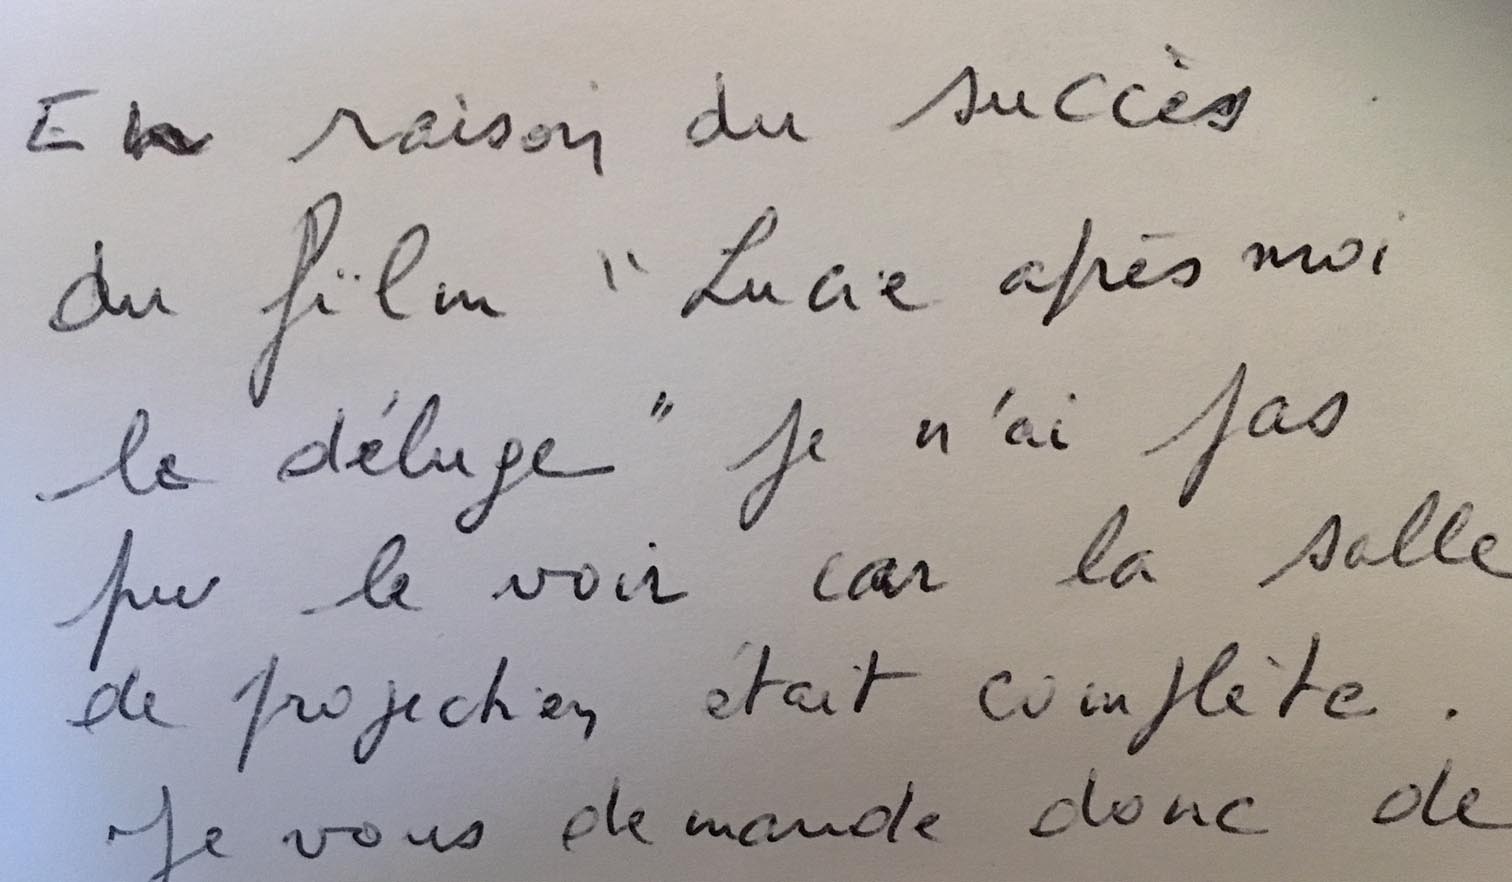 En raison du succès
du film "Lucie après moi
le déluge" je n'ai pas
pu le voir car la salle
de projection était complète.
Je vous demande donc de